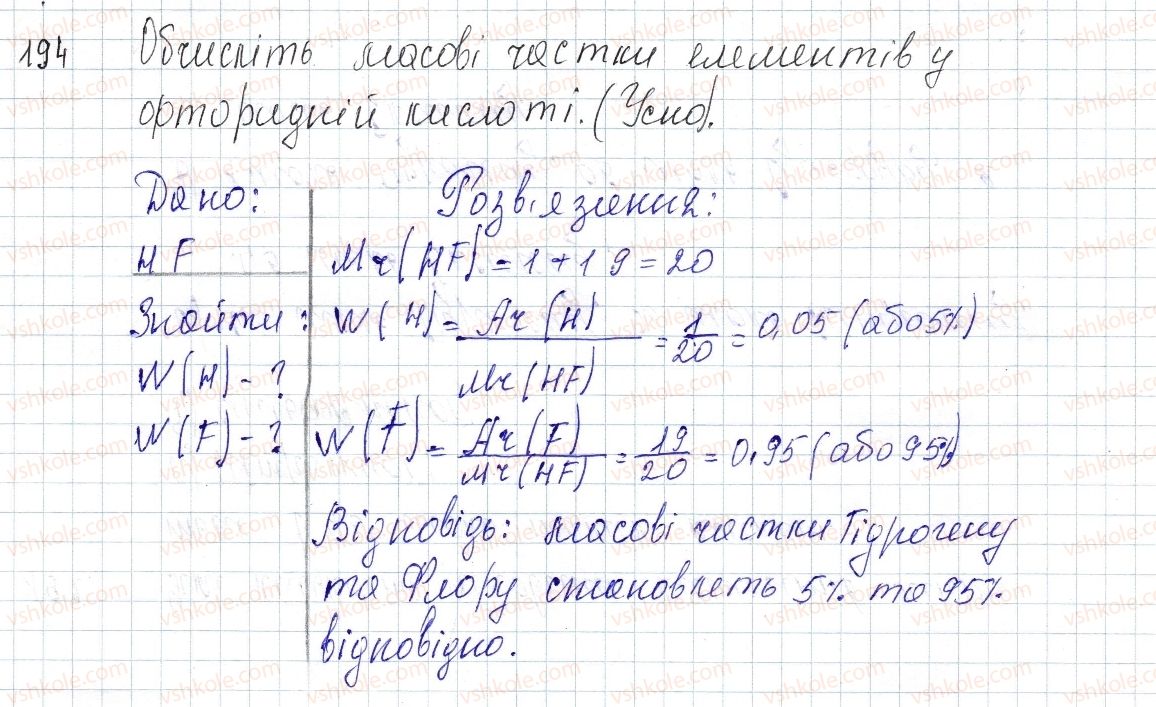 194 Обчисліть масові частки елементів у
фторидній кислоті. (Усно).
Дано:
HF
Знайти:
W(H) - ?
W(F) - ?
Розв'язання:
Mr(HF) = 1 + 19 = 20
W(H) = Ar(H) / Mr(HF) = 1/20 = 0,05 (або 5%)
W(F) = Ar(F) / Mr(HF) = 19/20 = 0,95 (або 95%)
Відповідь: масові частки Гідрогену
та Флору становлять 5% та 95%
відповідно.
vshkole.com